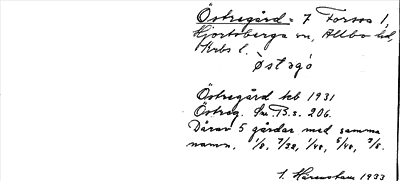 Östregård = 7 Forsos 1,
Hjortsberga sn, Allbo hd,
Krbs l.
Östegó
Östregård tcb 1931
Östreg. Sn. B. s. 206.
Därav 5 gårdar med samma
namn, 1/6, 7/32, 1/48, 5/48, 3/8.
1. 1933